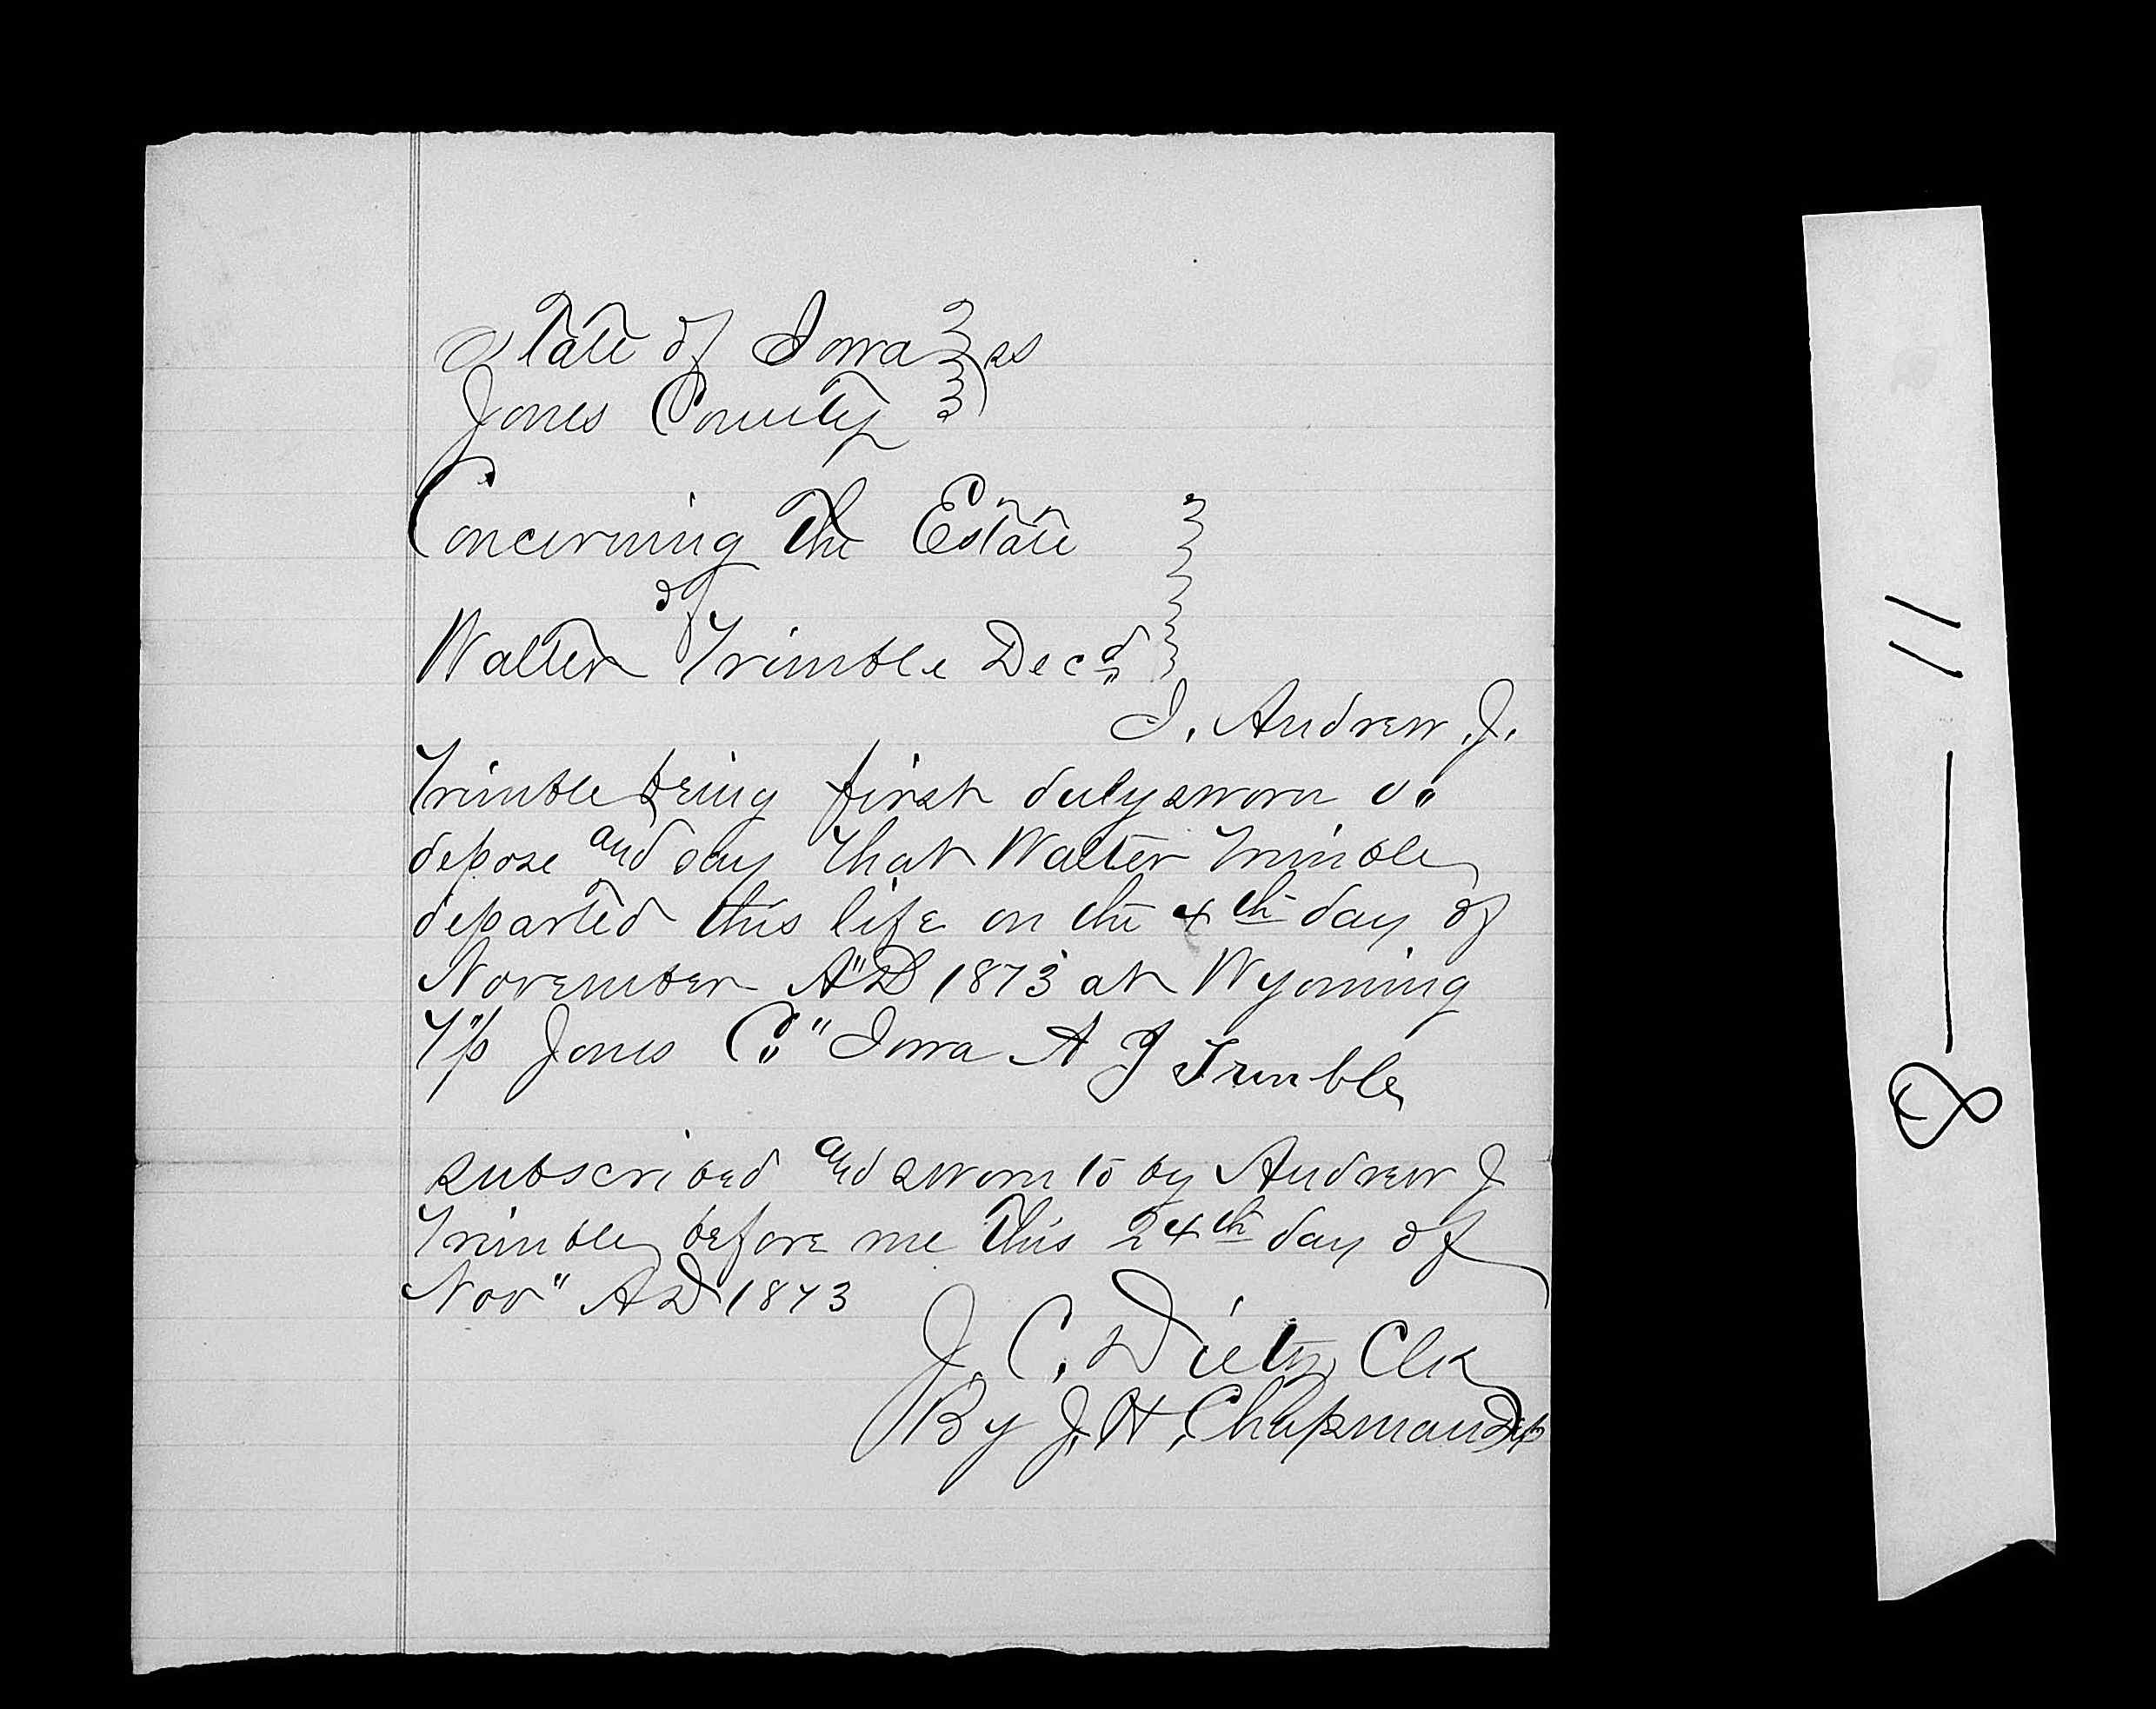 State of Iowa } ss
Jones County }
Concerning the Estate
of
Walter Trimble Decd
I. Andrew. J.
Trimble being first duly sworn do
depose and say that Walter Trimble
departed this life on the 4th day of
November A"D 1873 at Wyoming
T"p Jones Co" Iowa A J Trimble
subscribed and sworn to by Andrew J
Trimble before me this 24th day of
Nov" AD 1873
J. C. Dietz Clk
By J. H. Chapman Dep
8 — 11